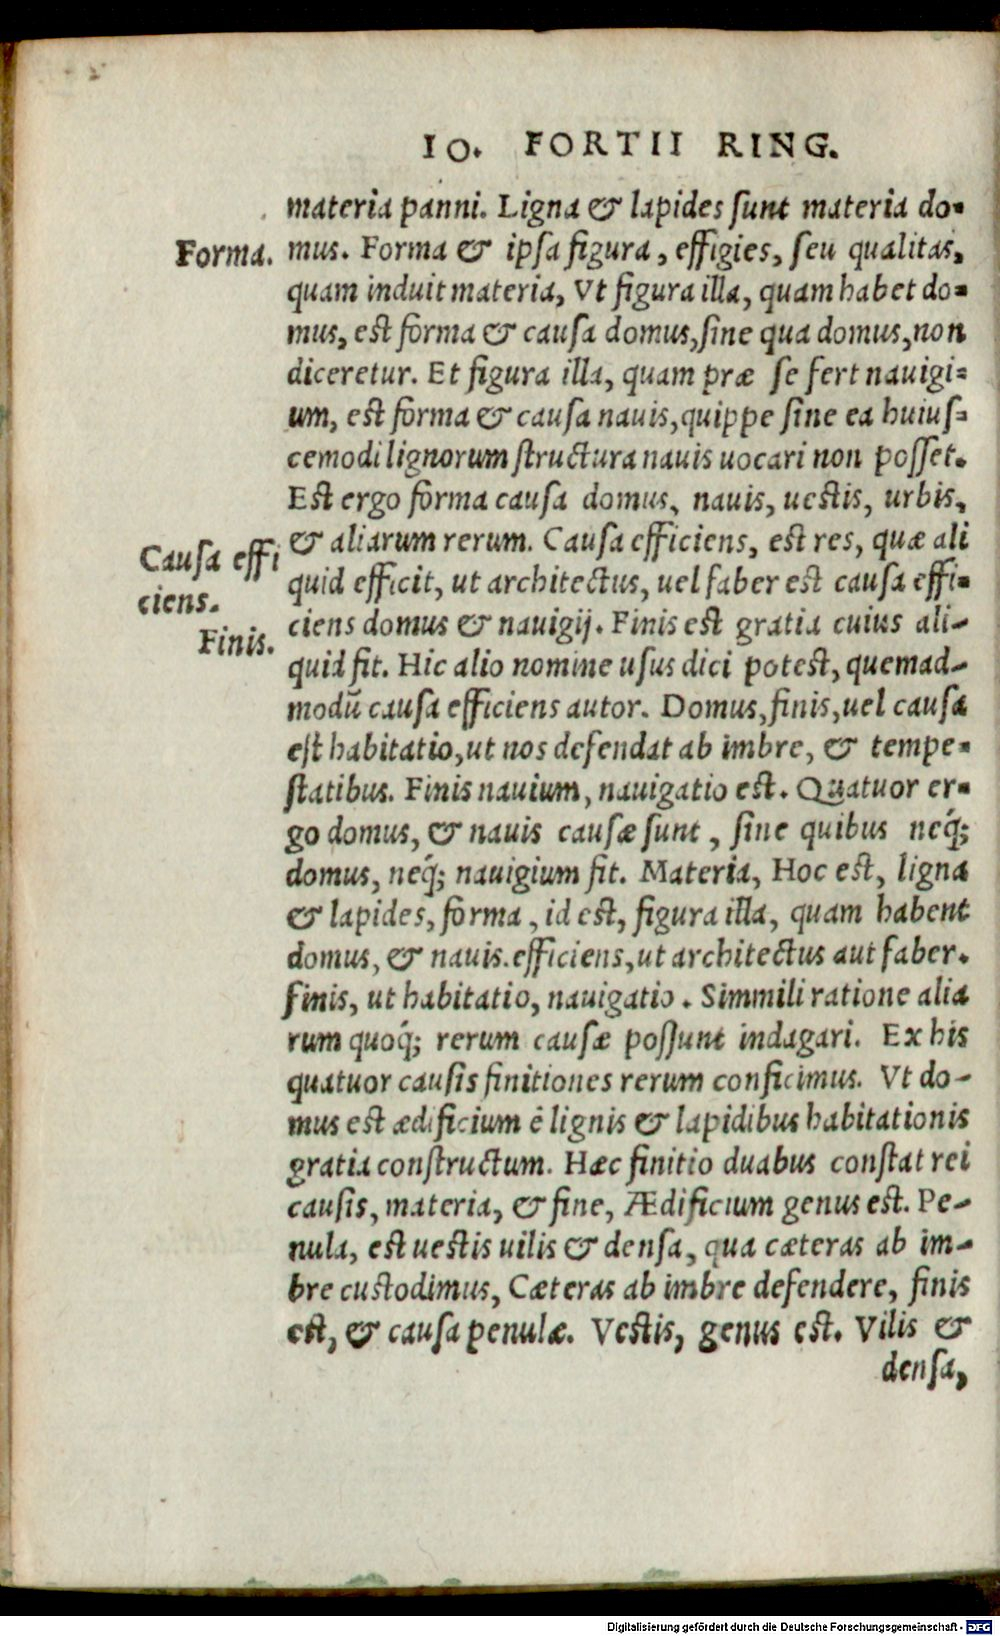 IO. FORTII RING.
materia panni. Ligna & lapides ſunt materia do=
Forma.
mus. Forma & ipſa figura, effigies, ſeu qualitas,
quam induit materia, Vt figura illa, quam habet do=
mus, est forma & cauſa domus, ſine qua domus, non
diceretur. Et figura illa, quam præ ſe fert nauigi=
um, est forma & cauſa nauis, quippe ſine ea huiuſ=
cemodi lignorum ſtructura nauis uocari non poſſet.
Est ergo forma cauſa domus, nauis, uestis, urbis,
Cauſa effi
ciens.
& aliarum rerum. Cauſa efficiens, est res, quæ ali
quid efficit, ut architectus, uel faber est cauſa effi=
Finis.
ciens domus & nauigij. Finis est gratia cuius ali-
quid fit. Hic alio nomine uſus dici potest, quemad-
modū cauſa efficiens autor. Domus, finis, uel cauſa
eſt habitatio, ut nos defendat ab imbre, & tempe=
ſtatibus. Finis nauium, nauigatio est. Quatuor er=
go domus, & nauis cauſæ ſunt, ſine quibus neq́;
domus, neq́; nauigium fit. Materia, Hoc est, ligna
& lapides, forma, id est, figura illa, quam habent
domus, & nauis. efficiens, ut architectus aut faber.
finis, ut habitatio, nauigatio. Simmili ratione alia
rum quoq́; rerum cauſæ poſſunt indagari. Ex his
quatuor cauſis finitiones rerum conficimus. Vt do-
mus est ædificium è lignis & lapidibus habitationis
gratia conſtructum. Hæc finitio duabus conſtat rei
cauſis, materia, & fine, Ædificium genus est. Pe-
nula, est uestis uilis & denſa, qua cæteras ab im-
bre custodimus, Cæteras ab imbre defendere, finis
est, & cauſa penulæ. Vestis, genus est. Vilis &
denſa,
Digitalisierung gefördert durch die Deutsche Forschungsgemeinschaft - DFG